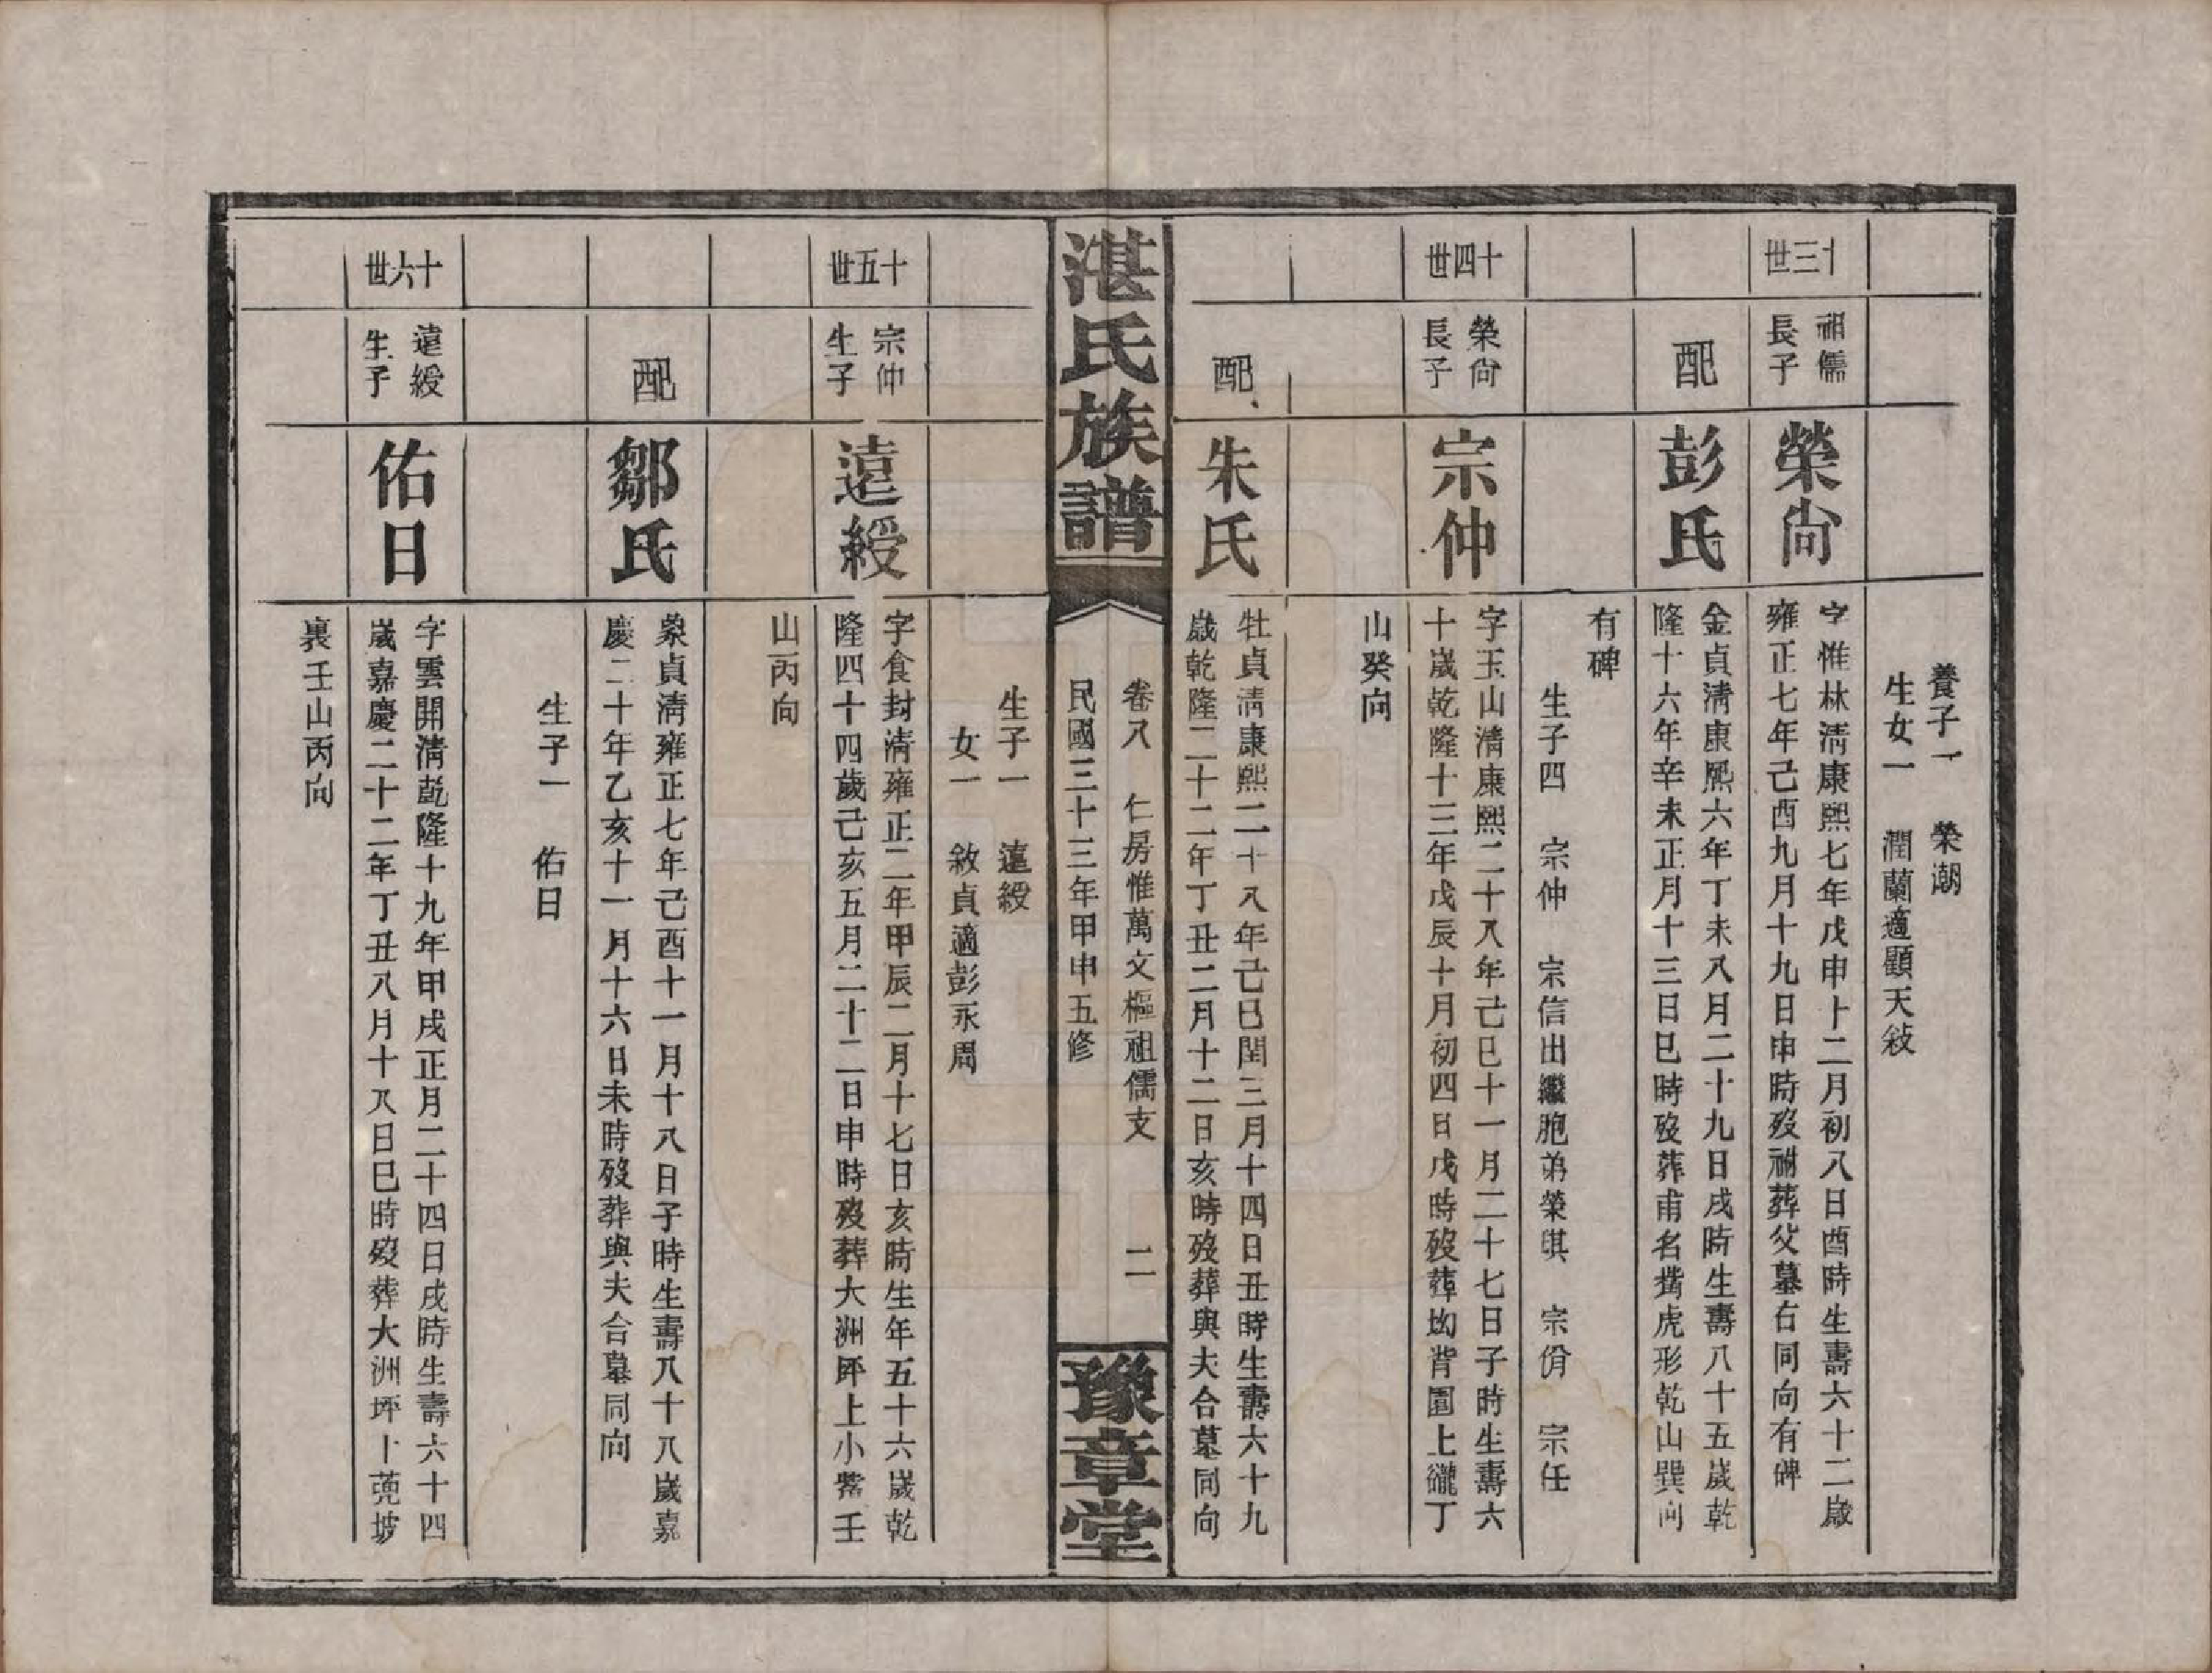 養子一　榮潮
生女一　潤蘭適顧天敍
十三世
祖儒
長子
榮尙
字惟林淸康熙七年戊申十二月初八日酉時生壽六十二歲
雍正七年己酉九月十九日申時歿祔葬父墓右同向有碑
配
彭氏
金貞淸康熙六年丁未八月二十九日戌時生壽八十五歲乾
隆十六年辛未正月十三日巳時歿葬甫名嘴虎形乾山巽向
有碑
生子四　宗仲　宗信出繼胞弟榮琪　宗佾　宗任
十四世
榮尙
長子
宗仲
字玉山淸康熙二十八年己巳十一月二十七日子時生壽六
十歲乾隆十三年戊辰十月初四日戊時歿葬坳背園上㘓丁
山癸向
配
朱氏
牡貞淸康熙二十八年己巳閏三月十四日丑時生壽六十九
歲乾隆二十二年丁丑二月十二日亥時歿葬與夫合墓同向
湛氏族譜
卷八　仁房惟萬文樞祖儒支　二
民國三十三年甲申五修
豫章堂
生子一　遠綬
女一　敘貞適彭永周
十五世
宗仲
生子
遠綬
字食封淸雍正二年甲辰二月十七日亥時生年五十六歲乾
隆四十四歲己亥五月二十二日申時歿葬大洲坪上小嘴壬
山丙向
配
鄒氏
彖貞淸雍正七年己酉十一月十八日子時生壽八十八歲嘉
慶二十年乙亥十一月十六日未時歿葬與夫合墓同向
生子一　佑日
十六世
遠綬
生子
佑日
字雲開淸乾隆十九年甲戌正月二十四日戌時生壽六十四
歲嘉慶二十二年丁丑八月十八日巳時歿葬大洲坪卜蔸坡
裏壬山丙向